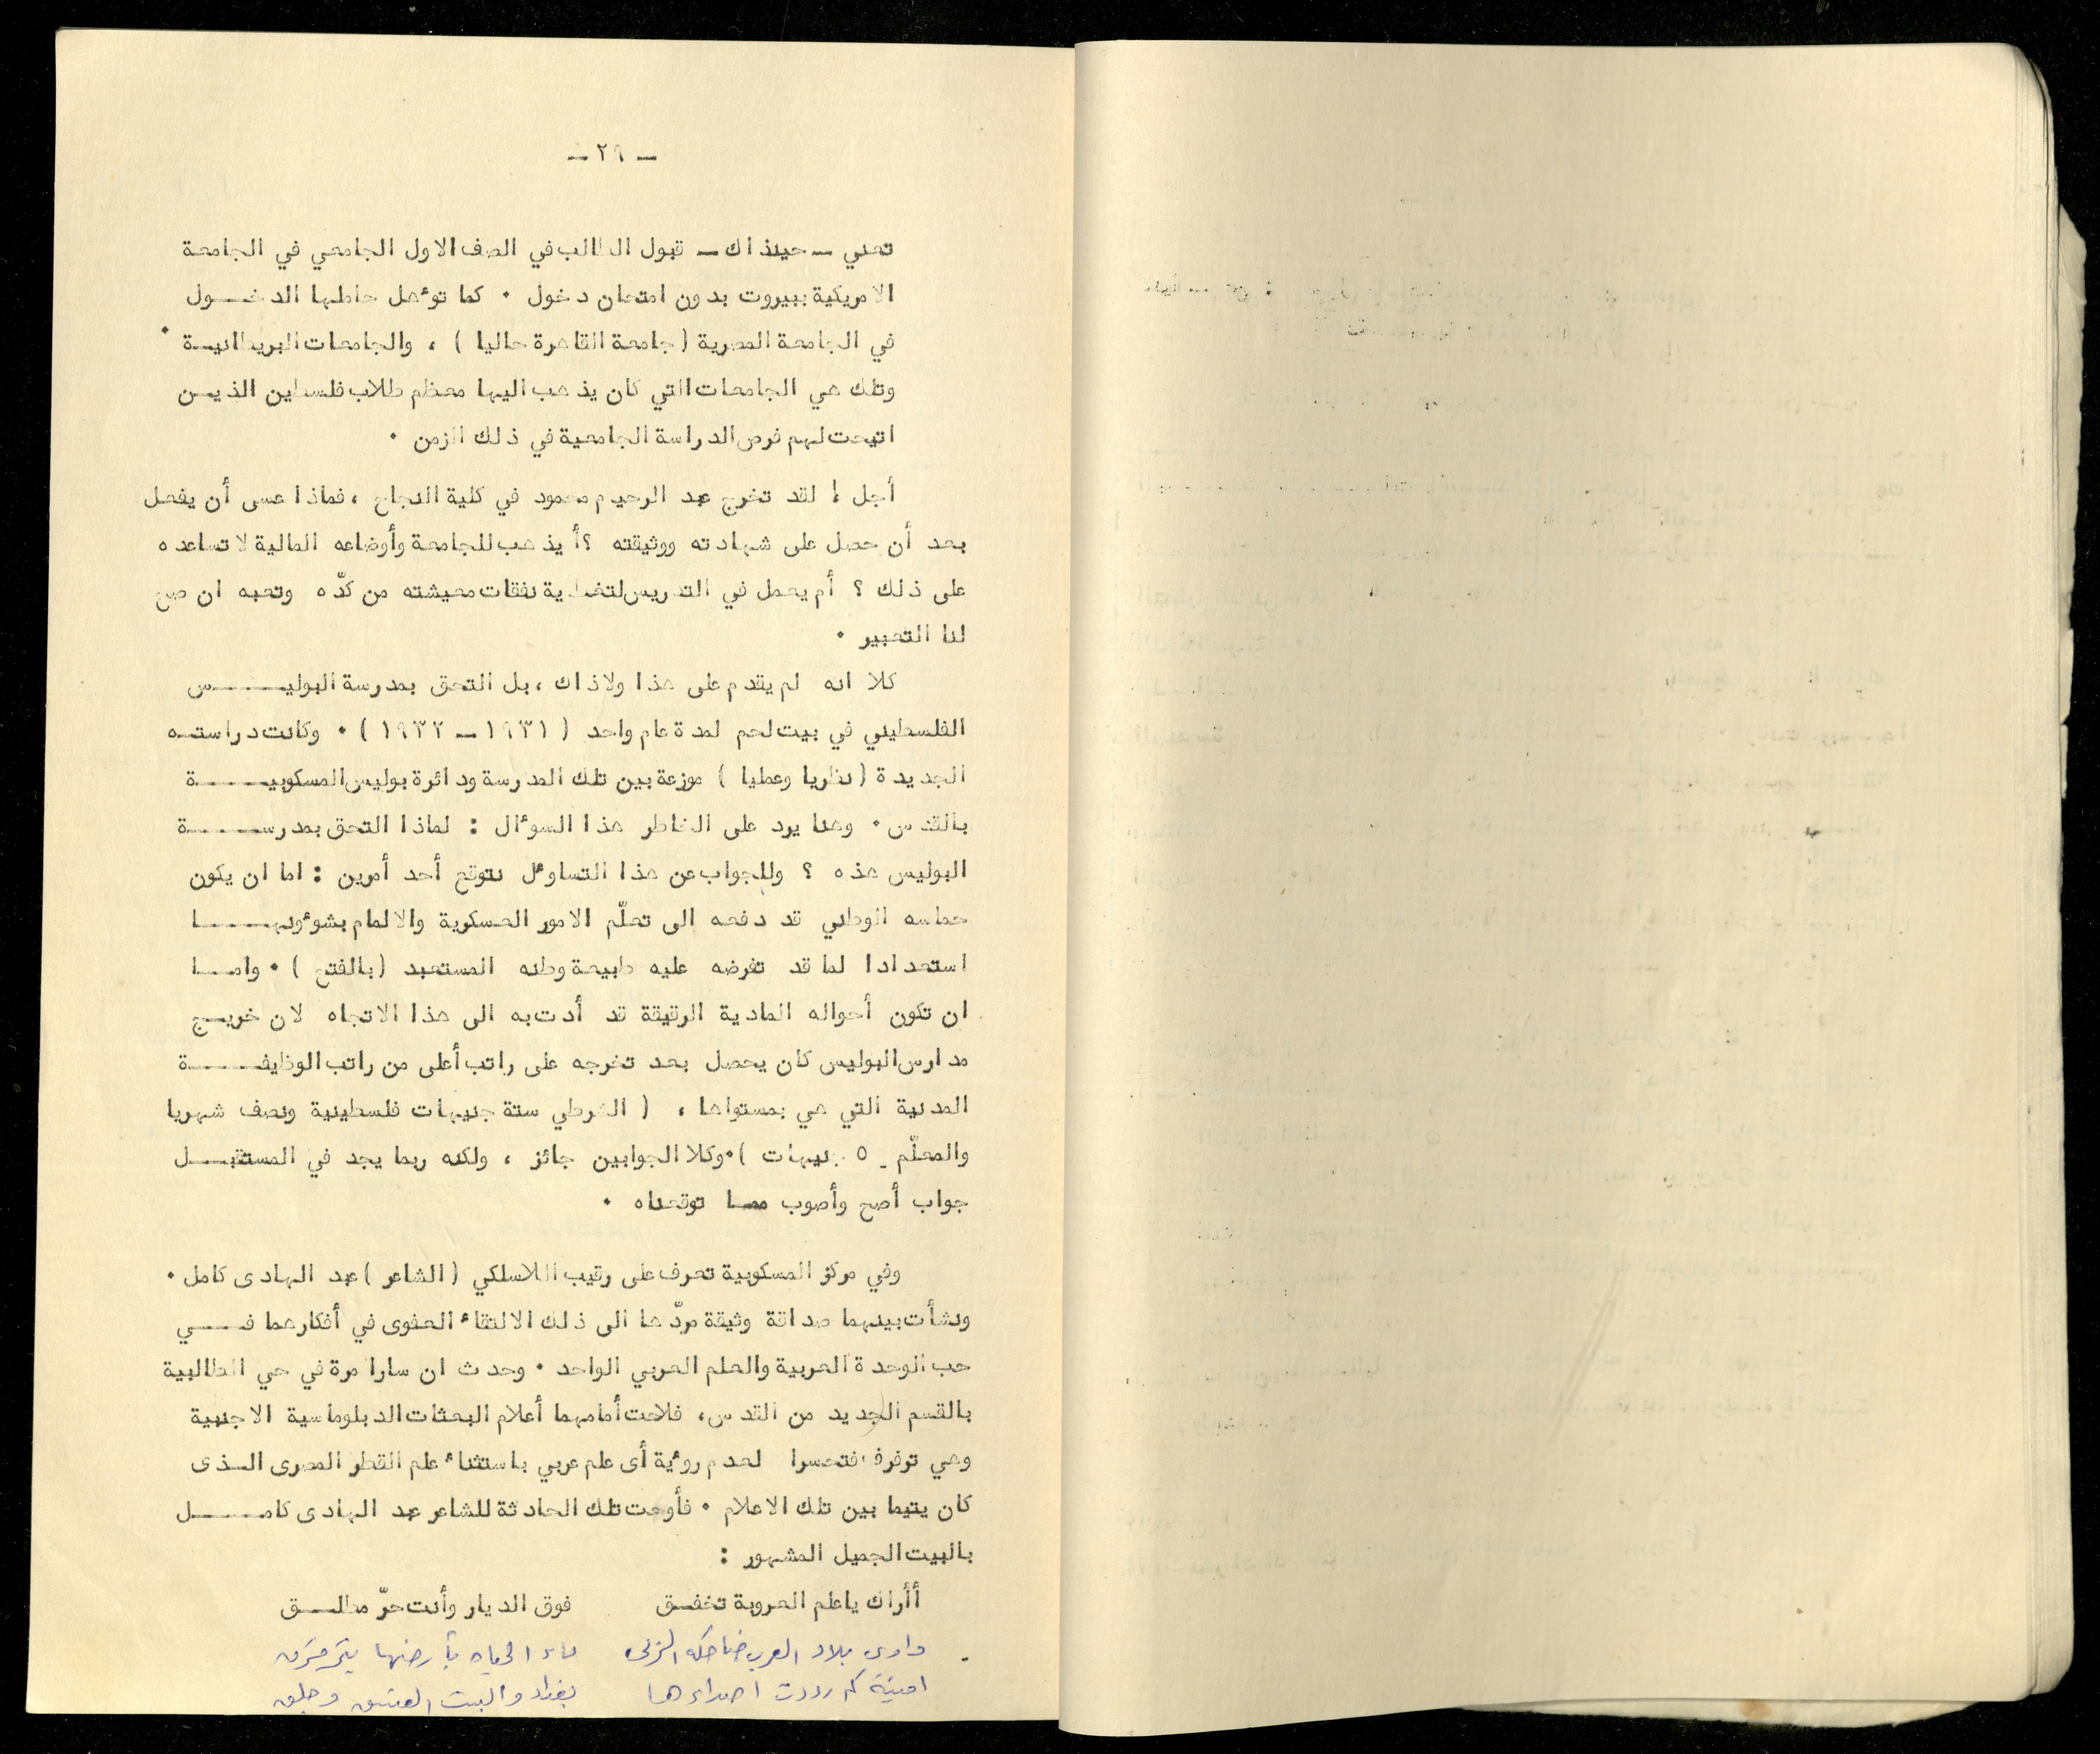 ــ ٢٩ ــ
تعني ــ حينذاك ــ قبول الطالب في الصف الاول الجامعي في الجامعة
الامريكية ببيروت بدون امتحان دخول ٠ كما توءهل حاملها الدخـــول
في الجامعة المصرية ( جامعة القاهرة حاليا ) ، والجامعات البريطانيـة ٠
وتلك هي الجامعات التي كان يذهب اليها معظم طلاب فلسطين الذيــن
اتيحت لهم فرص الدراسة الجامعية في ذلك الزمن ٠
أجل ! لقد تخرج عبد الرحيم محمود في كلية النجاح ، فماذا عسى أن يفعل
بعد أن حصل على شهادته ووثيقته ؟ أيذهب للجامعة وأوضاعه المالية لا تساعده
على ذلك ؟ أم يعمل في التدريس لتغطية نفقات معيشته من كدّه وتعبه ان صح
لنا التعبير ٠
كلا انه لم يقدم على هذا ولا ذاك ، بل التحق بمدرسة البوليــــــس
الفلسطيني في بيت لحم لمدة عام واحد ( ١٩٣١ ــ ١٩٣٢ ) ٠ وكانت دراستـه
الجديدة ( نظريا وعمليا ) موزعة بين تلك المدرسة ودائرة بوليس المسكوبيـــــة
بالقدس ٠ وهنا يرد على الخاطر هذا السوءال : لماذا التحق بمدرســــــة
البوليس هذه ؟ وللجواب عن هذا التساوءل نتوقع أحد أمرين : اما ان يكون
حماسه الوطني قد دفعه الى تعلّم الامور العسكرية والالمام بشوءونهـــــا
استعدادا لما قد تفرضه عليه طبيعة وطنه المستعبد ( بالفتح ) ٠ وامــــا
ان تكون أحواله المادية الرقيقة قد أدت به الى هذا الاتجاه لان خريــج
مدارس البوليس كان يحصل بعد تخرجه على راتب أعلى من راتب الوظيفـــــة
المدنية التي هي بمستواها ، ( الشرطي ستة جنيهات فلسطينية ونصف شهريا
والمعلّم ـ ٥ جنيهات ) ٠ وكلا الجوابين جائز ، ولكنه ربما يجد في المستقبــــل
جواب أصح وأصوب ممــا توقعناه ٠
وفي مركز المسكوبية تعرف على رقيب اللاسلكي ( الشاعر ) عبد الهادى كامل ٠
ونشأت بينهما صداقة وثيقة مردّها الى ذلك الالتقاء العفوى في أفكارهما فــــي
حب الوحدة العربية والعلم العربي الواحد ٠ وحدث ان سارا مرة في حي الطالبية
بالقسم الجديد من القدس ، فلاحت أمامهما أعلام البعثات الدبلوماسية الاجنبية
وهي ترفرف فتحسرا لعدم روءية أى علم عربي باستثناء علم القطر المصرى الــذى
كان يتيما بين تلك الاعلام ٠ فأوحت تلك الحادثة للشاعر عبد الهادى كامـــــل
بالبيت الجميل المشهور :
أأراك ياعلم العروبة تخفــق فوق الديار وأنت حرّ مطلــــق
وارى بلاد العرب ضاحكة الربى ماء الحياه بأرضها يترقرق
امنية كم رددت اصداءها بغداد والبيت العتيق وجلق